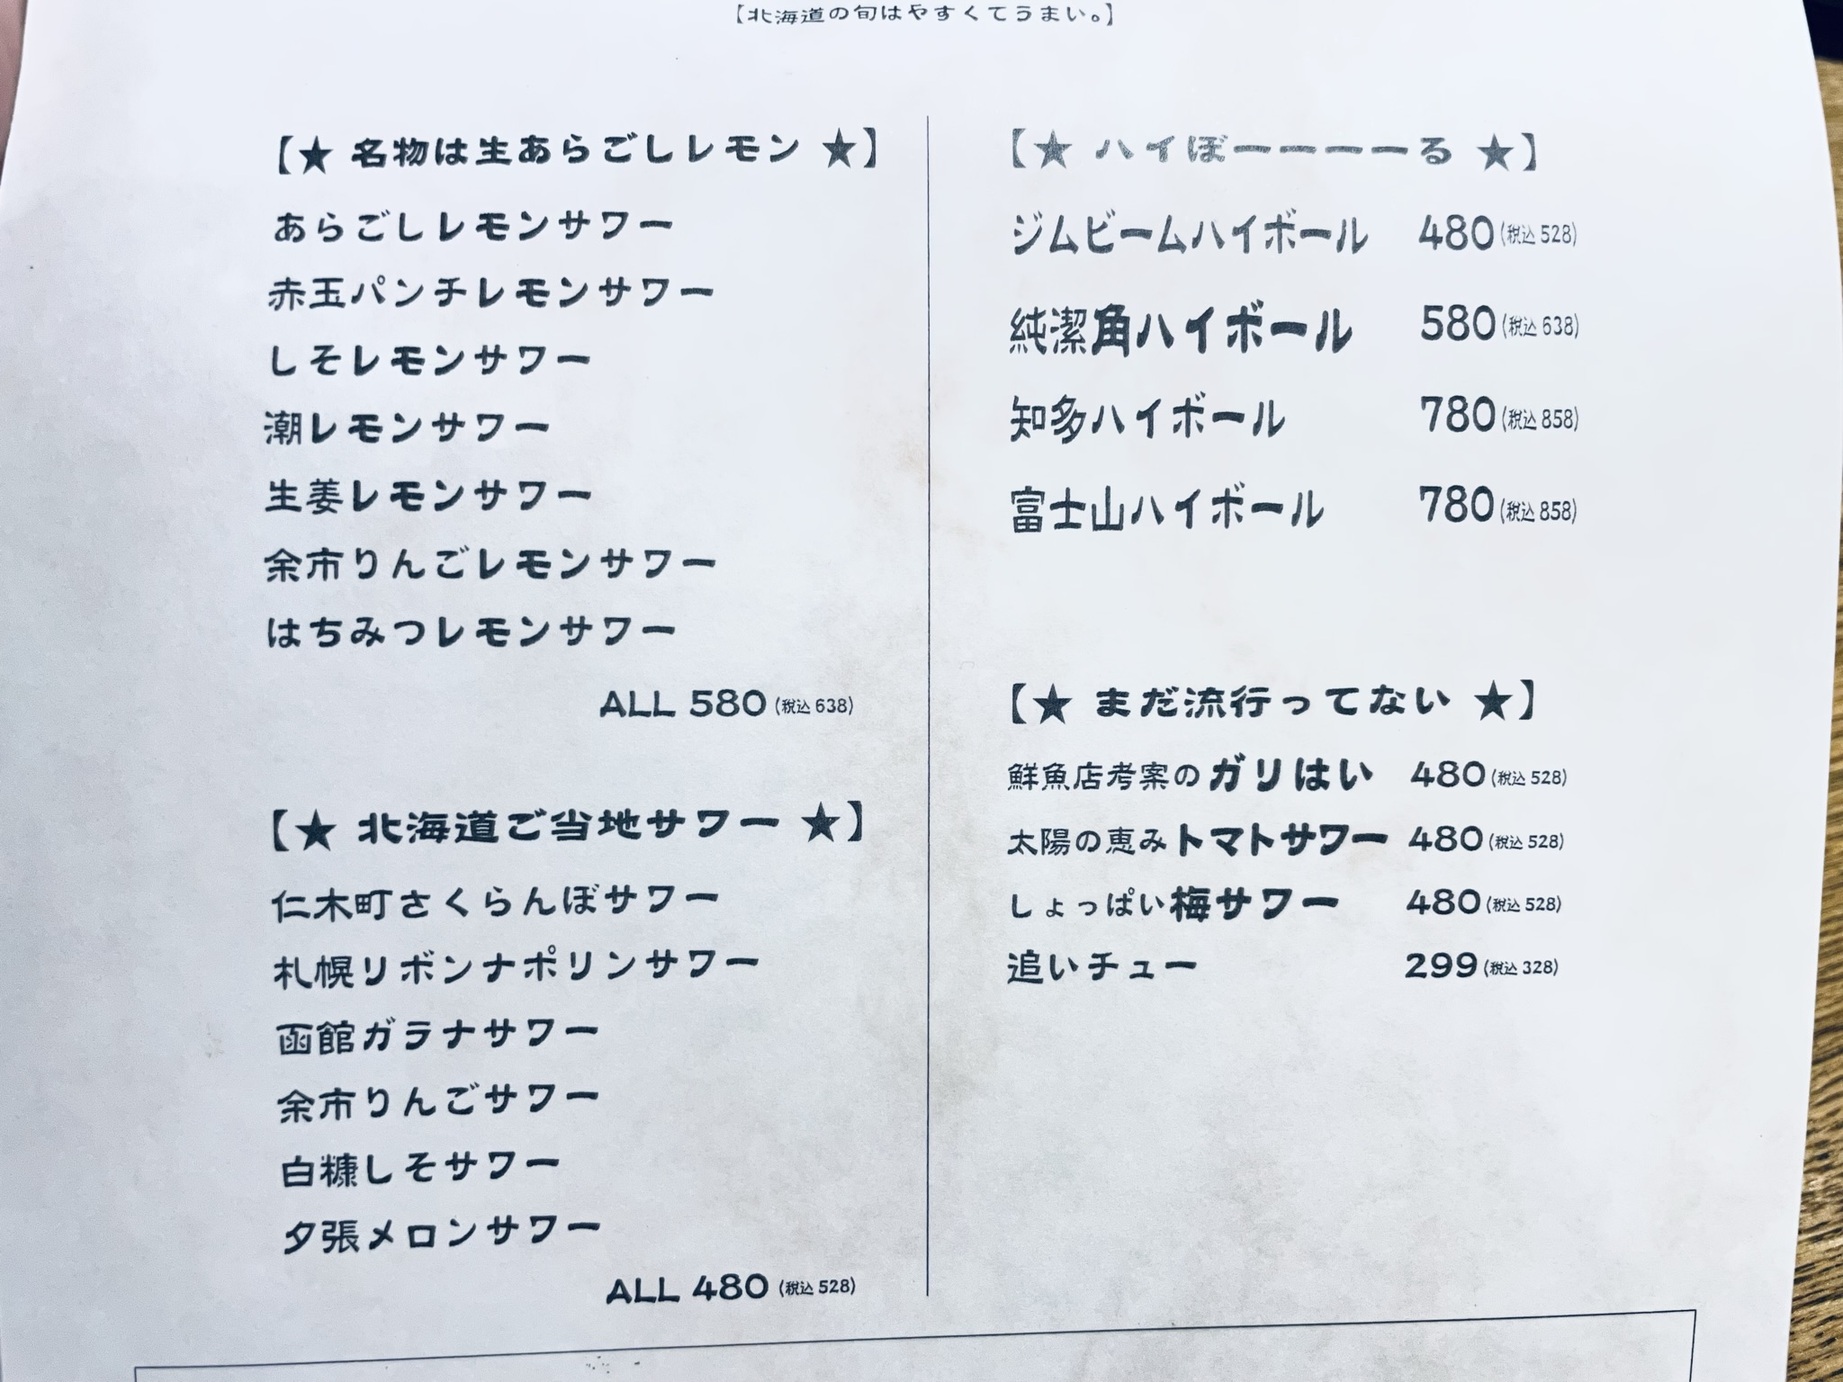 【北海道の旬はやすくてうまい。】
【★ 名物は生あらごしレモン ★】
あらごしレモンサワー
赤玉パンチレモンサワー
しそレモンサワー
潮レモンサワー
生姜レモンサワー
余市りんごレモンサワー
はちみつレモンサワー
ALL 580(税込 638)
【★ 北海道ご当地サワー ★】
仁木町さくらんぼサワー
札幌リボンナポリンサワー
函館ガラナサワー
余市りんごサワー
白糠しそサワー
夕張メロンサワー
ALL 480(税込 528)
【★ ハイぼーーーーる ★】
ジムビームハイボール 480(税込 528)
純潔角ハイボール 580(税込 638)
知多ハイボール 780(税込 858)
富士山ハイボール 780(税込 858)
【★ まだ流行ってない ★】
鮮魚店考案のガリはい 480(税込 528)
太陽の恵みトマトサワー 480(税込 528)
しょっぱい梅サワー 480(税込 528)
追いチュー 299(税込 328)